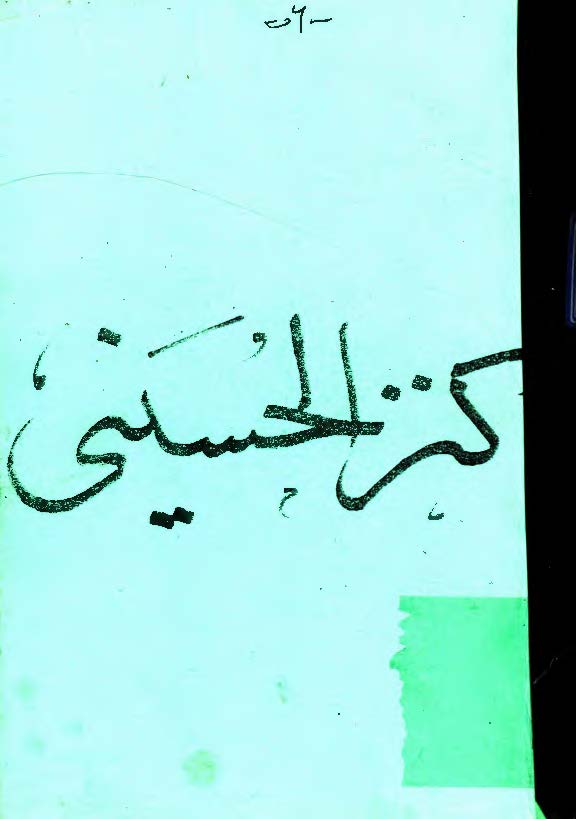 كنز الحسينى